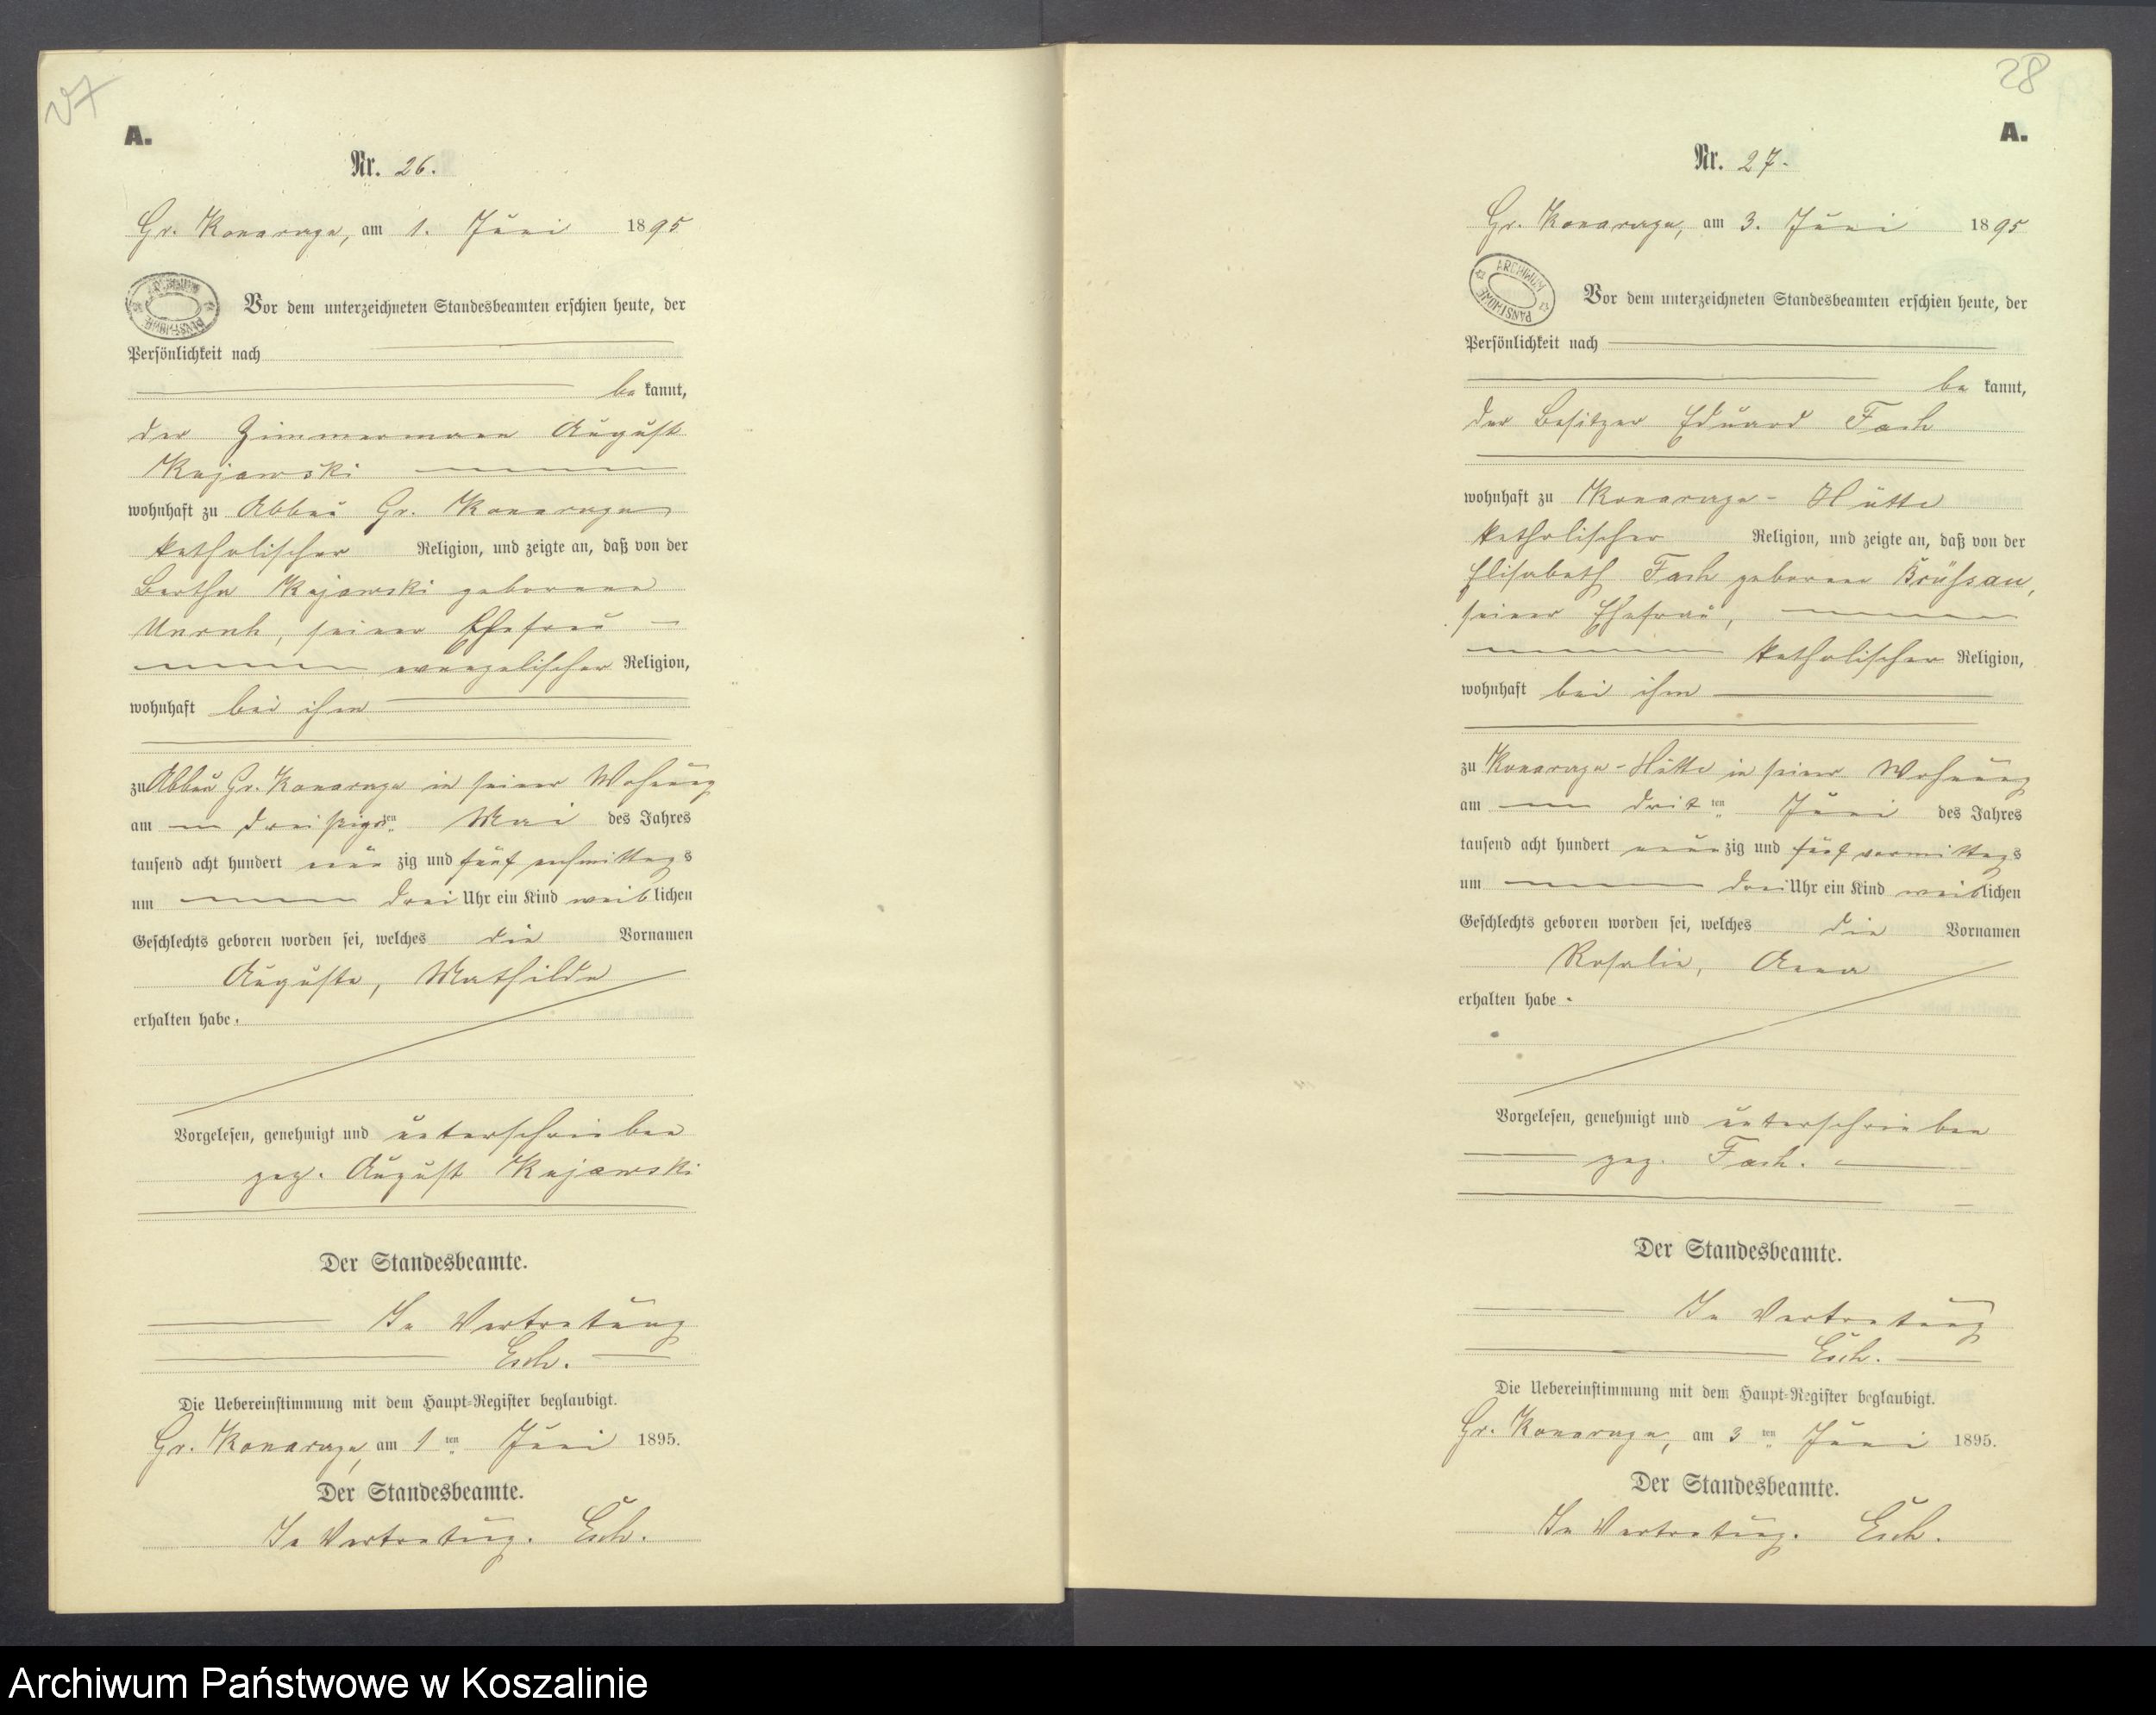 27
A.
Nr. 26.
Gr. Konarzyn, am 1. Juni 1895
ARCHIWUM PAŃSTWOWE
Vor dem unterzeichneten Standesbeamten erschien heute, der
Persönlichkeit nach
be kannt,
der Zimmermann August
Kujawski
wohnhaft zu Abbau Gr. Konarzyn
katholischer Religion, und zeigte an, daß von der
Bertha Kujawski geborene
Unruh, seiner Ehefrau
evangelischer Religion,
wohnhaft bei ihm
zu Abbau Gr. Konarzyn in seiner Wohnung
am dreißigsten Mai des Jahres
tausend acht hundert neun zig und fünf nachmittags
um drei Uhr ein Kind weiblichen
Geschlechts geboren worden sei, welches die Vornamen
Auguste, Mathilde
erhalten habe.
Vorgelesen, genehmigt und unterschrieben
gez. August Kujawski
Der Standesbeamte.
In Vertretung
Esch.
Die Uebereinstimmung mit dem Haupt-Register beglaubigt.
Gr. Konarzyn, am 1ten Juni 1895.
Der Standesbeamte.
In Vertretung. Esch.
28
A.
Nr. 27.
Gr. Konarzyn, am 3. Juni 1895
ARCHIWUM PAŃSTWOWE
Vor dem unterzeichneten Standesbeamten erschien heute, der
Persönlichkeit nach
be kannt,
der Besitzer Eduard Fach
wohnhaft zu Konarzyn-Hütte
katholischer Religion, und zeigte an, daß von der
Elisabeth Fach geborene Brüssau,
seiner Ehefrau,
katholischer Religion,
wohnhaft bei ihm
zu Konarzyn-Hütte in seiner Wohnung
am dritten Juni des Jahres
tausend acht hundert neun zig und fünf vormittags
um drei Uhr ein Kind weiblichen
Geschlechts geboren worden sei, welches die Vornamen
Rosalie, Anna
erhalten habe.
Vorgelesen, genehmigt und unterschrieben
gez. Fach.
Der Standesbeamte.
In Vertretung
Esch.
Die Uebereinstimmung mit dem Haupt-Register beglaubigt.
Gr. Konarzyn, am 3ten Juni 1895.
Der Standesbeamte.
In Vertretung. Esch.
Archiwum Państwowe w Koszalinie